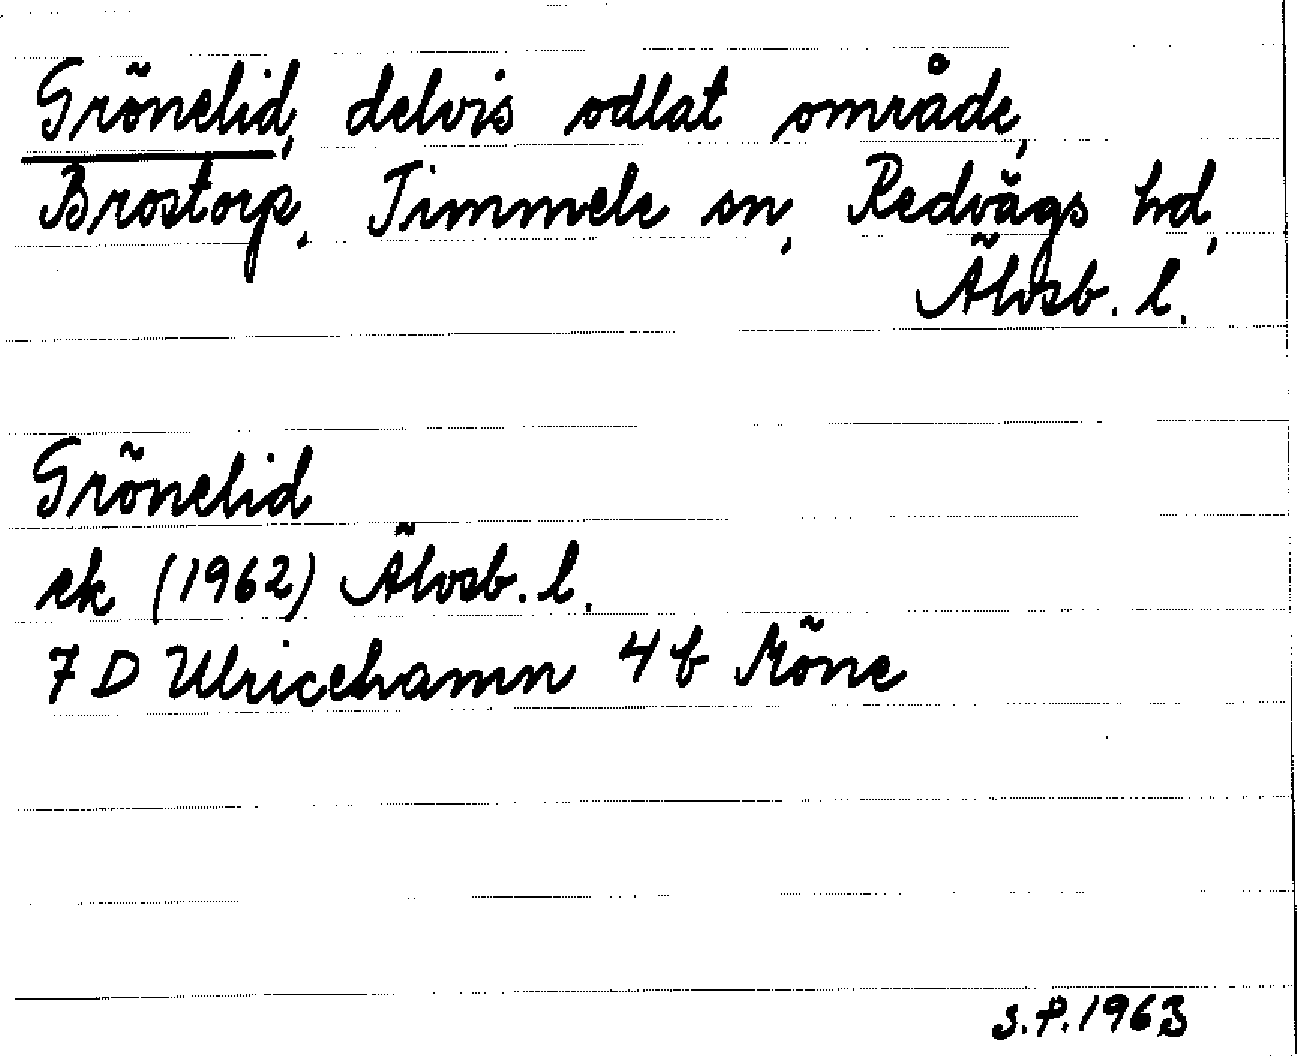 Grönelid, delvis odlat område,
Brostorp, Timmele sn, Redvägs hd,
Älvsb. l.
Grönelid
ek (1962) Älvsb. l.
7 D Ulricehamn 4 b Möne
S.P. 1963